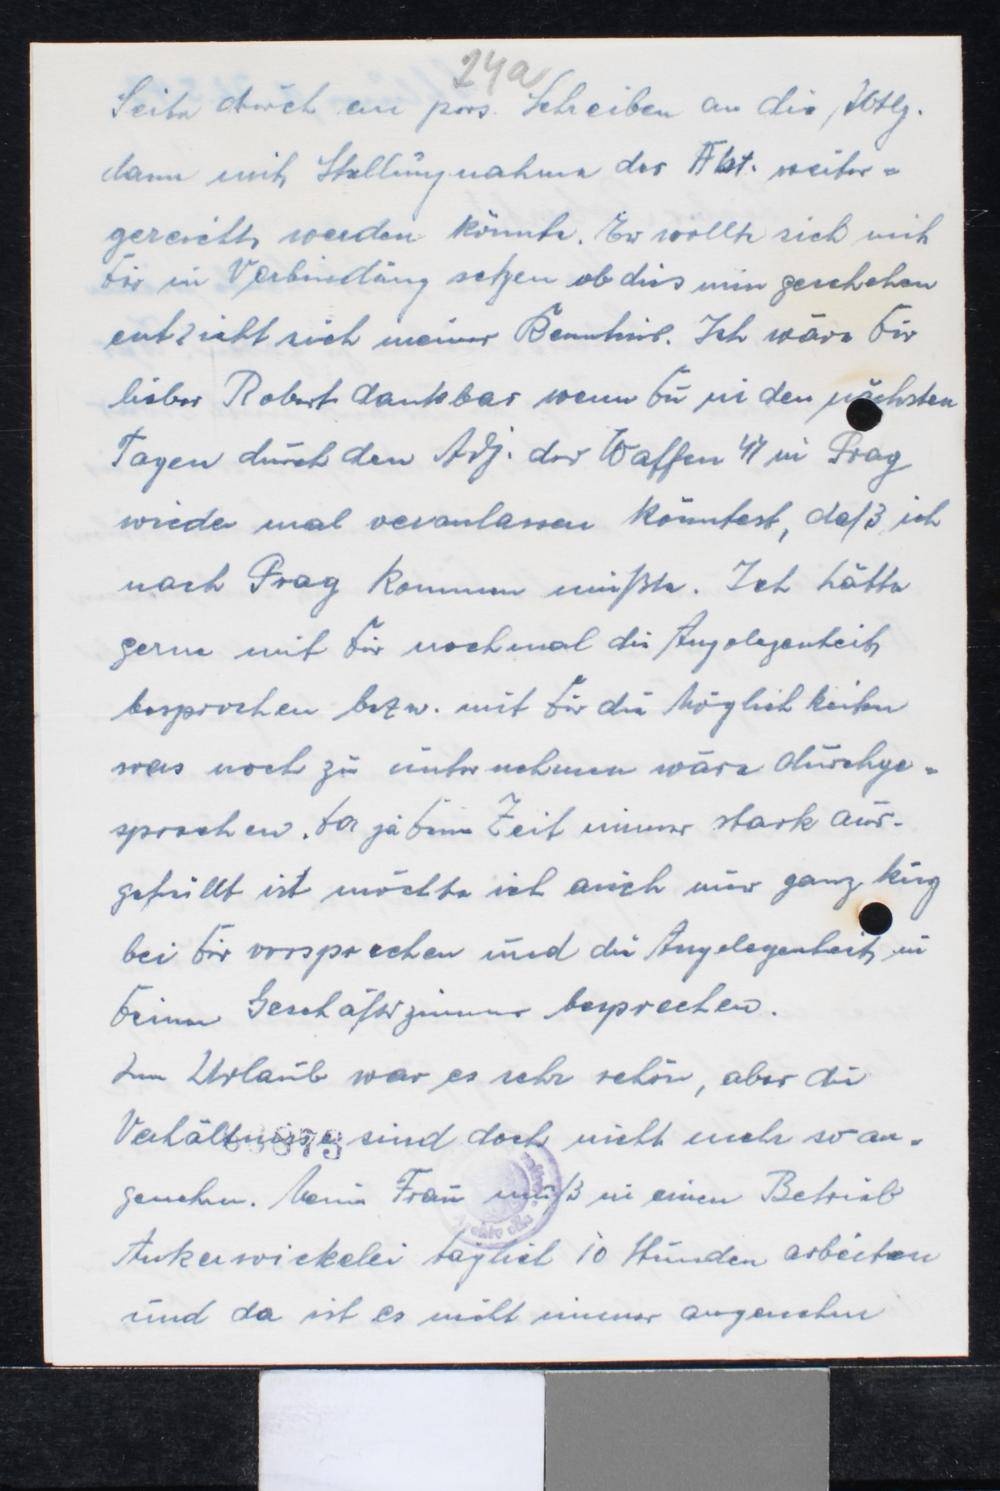 24a
Seite durch ein pers. Schreiben an die Abtlg.
dann mit Stellungnahme der Abt. weiter-
gereicht werden könnte. Er wollte sich mit
Dir in Verbindung setzen ob dies nun geschehen
entzieht sich meiner Kenntnis. Ich wäre Dir
lieber Robert dankbar wenn Du in den nächsten
Tagen durch den Adj. der Waffen SS in Prag
wieder mal veranlassen könntest, daß ich
nach Prag kommen müßte. Ich hätte
gerne mit Dir nochmal die Angelegenheit
besprochen bezw. mit Dir die Möglichkeiten
was noch zu unternehmen wäre durchge-
sprochen. Da ja Deine Zeit immer stark aus-
gefüllt ist möchte ich auch nur ganz kurz
bei Dir vorsprechen und die Angelegenheit in
Deinem Geschäftszimmer besprechen.
Im Urlaub war es sehr schön, aber die
Verhältnisse sind doch nicht mehr so an-
genehm. Meine Frau muß in einen Betrieb
Ankerwickelei täglich 10 Stunden arbeiten
und da ist es nicht immer angenehm